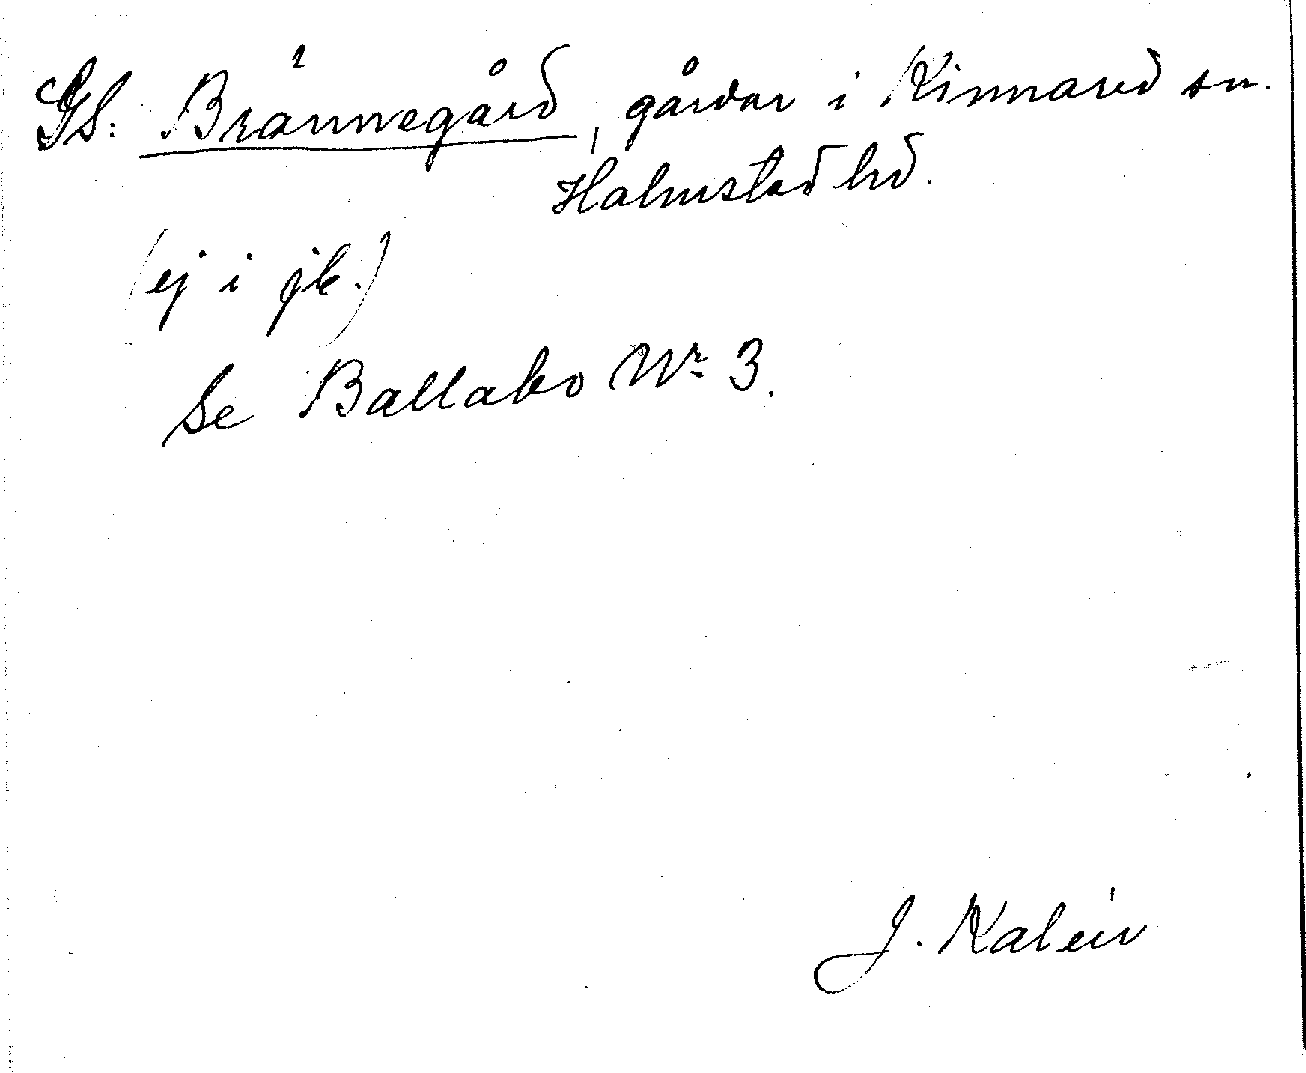 GS: Brännegård, gårdar i Kinnared sn.
Halmstad hd.
(ej i jb.)
Se Ballabo Nr 3.
J. Kalén